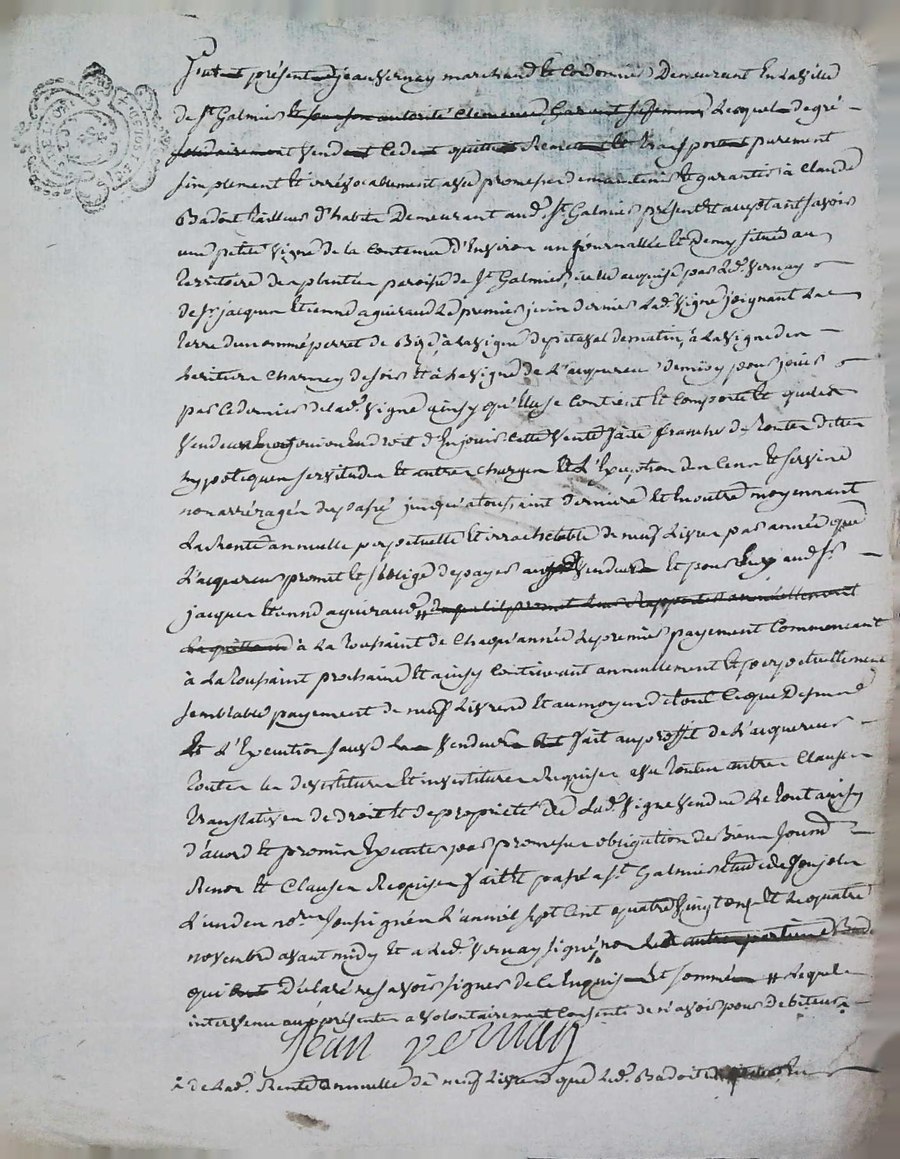 Fut présent jean Vernay marchand et Cordonnier Demeurant En la Ville
de St Galmier et sous son autorité Lequel de gré
Vend Cede quitte Remet et transporte purement
simplement et irrévocablement avec promesse de maintenir et garantir à Claude
Badoit tailleur d'habits Demeurant aud. St Galmier présent et acceptant savoir
une petite Vigne de la Contenue d'Environ un journallée et Demy située au
territoire des plantées paroisse de St Galmier, icelle acquise par led. Vernay
de Sr jacques Etienne aguiraud Le premier juin dernier Lad. Vigne joignant La
terre du nommé perret de Bize, à la vigne de pitaval de matin, à la vigne des
héritiers Charney de soir Et à La Vigne de L'acquereur de midy pour jouir
par Ce dernier de lad. Vigne ainsy qu'elle se Contient et Comporte et que les
Vendeurs En jouir cette Vente faite franche de toutes dettes
hypoteques servitudes Et autres charges Et à L'Exception des Cens Et servis
non arréragés du passé jusqu'à toussaint derniere Et En outre moyennant
La Rente annuelle perpetuelle et irrachetable de neuf Livres par année que
L'acquereur promet et s'oblige de payer Vendeur Et pour Luy aud. Sr
jacques Etienne aguiraud #
à La toussaint de Chaqu'année le premier payement Commencant
à La toussaint prochaine Et ainsy Continuant annuellement Et perpetuellement
semblable payement de neuf Livres Et au moyend de tout Ce que Dessus
Et L'Execution Vendeur fait au proffit de L'acquereur
toutes Les devestitures Et investitures Requises avec toutes autres Clauses
translatives de droit Et de proprieté de Lad. Vigne Vendue Le tout ainsy
d'acord Et promis Executer par promesse obligation de Biens
Renon Et Clauses Requises fait Et passé a St Galmier Etude de
L'un des nores soussignés L'année sept cent quatre Vingt onze Et Le quatre
novembre avant midy Et a Led. Vernay signé non
qui Déclaré ne savoir signer de Ce Enquis Et sommé # Lequel
intervenu aux présentes a volontairement Consenti de n'avoir pour debiteur
jean vernay
de Lad. Rente annuelle de neuf Livres que Led. Badoit